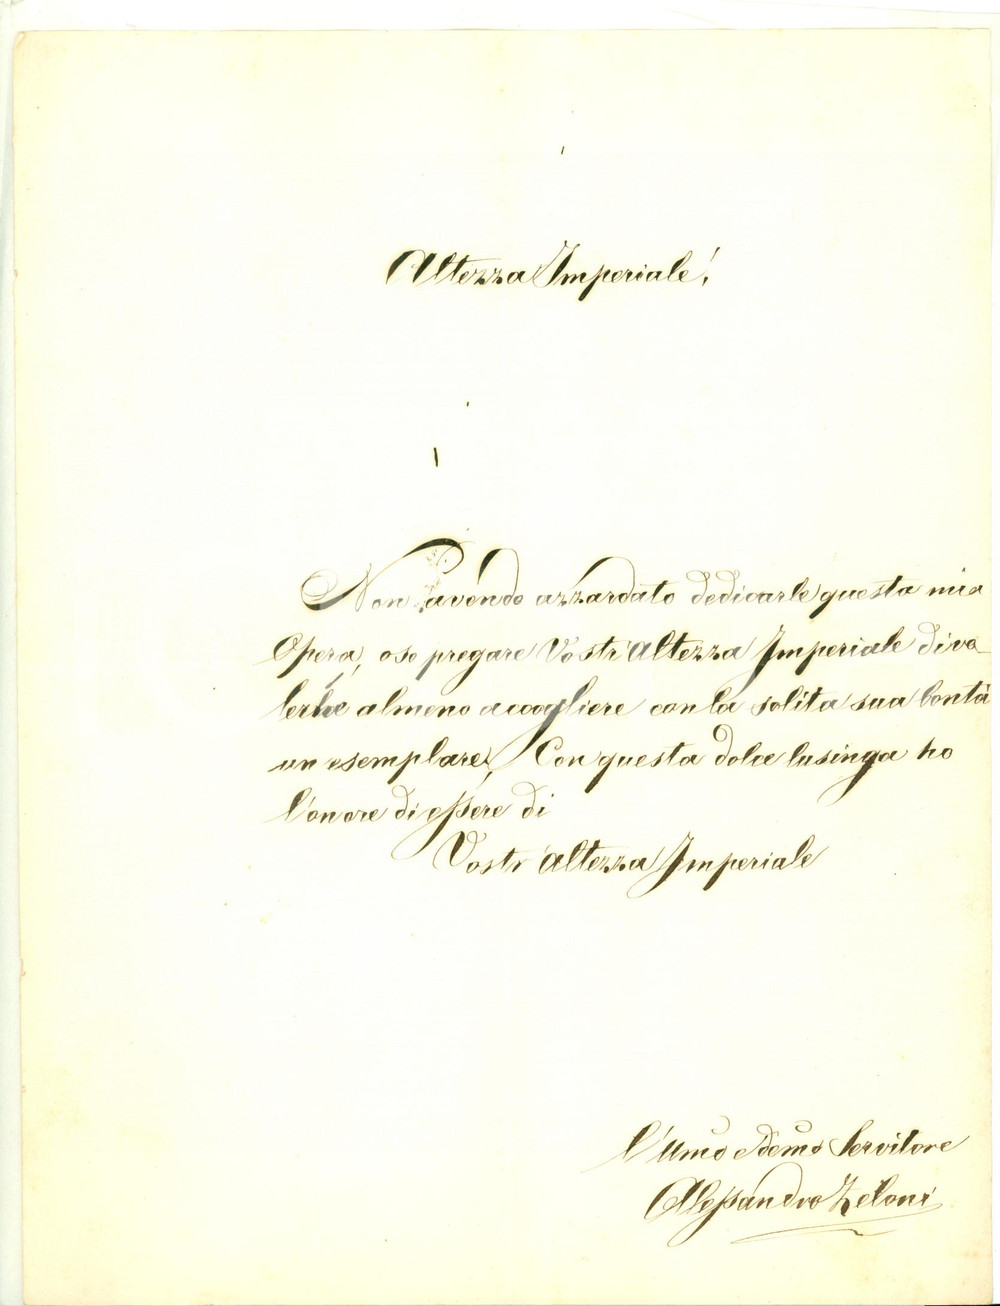 Altezza Imperiale!
Non avendo azzardato dedicarle questa mia
Opera, oso pregare Vostr'Altezza Imperiale di va-
lerla almeno accogliere con la solita sua bontà
un esemplare, Con questa dolce lusinga ho
l'onore di essere di
Vostr'Altezza Imperiale
l'Umo e Demo Servitore
Alessandro Zeloni